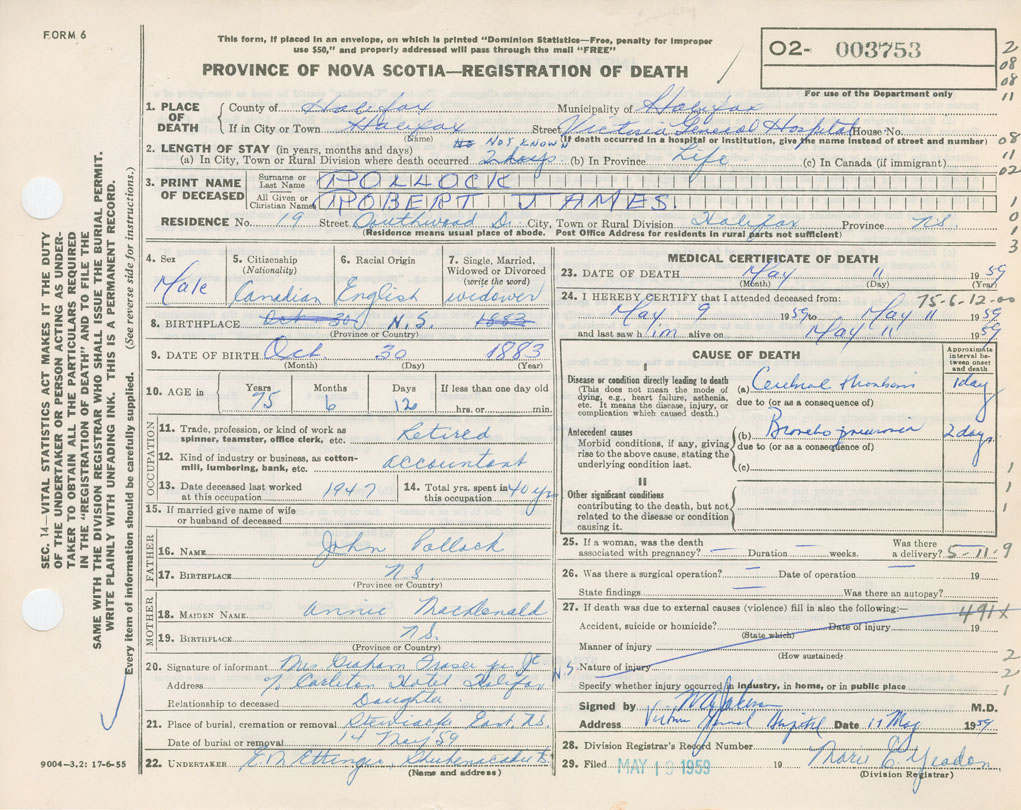 FORM 6
This form, if placed in an envelope, on which is printed "Dominion Statistics—Free, penalty for improper
use $50," and properly addressed will pass through the mail "FREE"
PROVINCE OF NOVA SCOTIA—REGISTRATION OF DEATH
O2- 003753
For use of the Department only
2
08
08
11
08
11
02
1
0
1
3
SEC. 14—VITAL STATISTICS ACT MAKES IT THE DUTY
OF THE UNDERTAKER OR PERSON ACTING AS UNDER-
TAKER TO OBTAIN ALL THE PARTICULARS REQUIRED
IN THE "REGISTRATION OF DEATH" AND TO FILE THE
SAME WITH THE DIVISION REGISTRAR WHO SHALL ISSUE THE BURIAL PERMIT.
WRITE PLAINLY WITH UNFADING INK. THIS IS A PERMANENT RECORD.
Every item of information should be carefully supplied. (See reverse side for instructions.)
1. PLACE OF DEATH
County of Halifax Municipality of Halifax
If in City or Town Halifax Street Victoria General Hospital House No.
(Name) (If death occurred in a hospital or institution, give the name instead of street and number)
2. LENGTH OF STAY (in years, months and days) NOT KNOWN
(a) In City, Town or Rural Division where death occurred 2 days (b) In Province Life (c) In Canada (if immigrant)
3. PRINT NAME OF DECEASED
Surname or Last Name POLLOCK
All Given or Christian Names ROBERT JAMES
RESIDENCE No. 19 Street Southwood Dr. City, Town or Rural Division Halifax Province N.S.
(Residence means usual place of abode. Post Office Address for residents in rural parts not sufficient)
4. Sex Male
5. Citizenship (Nationality) Canadian
6. Racial Origin English
7. Single, Married, Widowed or Divorced (write the word) widower
8. BIRTHPLACE Oct 30 N.S. 1883
(Province or Country)
9. DATE OF BIRTH Oct. 30 1883
(Month) (Day) (Year)
10. AGE in Years 75 Months 6 Days 12 If less than one day old hrs. or min.
OCCUPATION
11. Trade, profession, or kind of work as spinner, teamster, office clerk, etc. Retired
12. Kind of industry or business, as cotton-mill, lumbering, bank, etc. accountant
13. Date deceased last worked at this occupation 1947
14. Total yrs. spent in this occupation 40 yrs
15. If married give name of wife or husband of deceased
FATHER
16. NAME John Pollock
17. BIRTHPLACE N.S.
(Province or Country)
MOTHER
18. MAIDEN NAME Annie MacDonald
19. BIRTHPLACE N.S.
(Province or Country)
20. Signature of informant Mrs Graham Fraser
Address Carleton Hotel Halifax N.S.
Relationship to deceased Daughter
21. Place of burial, cremation or removal Stewiacke East N.S.
Date of burial or removal 14 May 59
22. UNDERTAKER E N Ettinger, Shubenacadie
(Name and address)
9004-3.2: 17-6-55
MEDICAL CERTIFICATE OF DEATH
23. DATE OF DEATH May 11 1959
(Month) (Day) (Year)
24. I HEREBY CERTIFY that I attended deceased from: 75-6-12-00
May 9 1959 to May 11 1959
and last saw him alive on May 11 1959
CAUSE OF DEATH
Approximate interval between onset and death
I
Disease or condition directly leading to death
(This does not mean the mode of dying, e.g., heart failure, asthenia, etc. It means the disease, injury, or complication which caused death.)
(a) Cerebral thrombosis 1 day
due to (or as a consequence of)
Antecedent causes
Morbid conditions, if any, giving rise to the above cause, stating the underlying condition last.
(b) Broncho pneumonia 2 days
due to (or as a consequence of)
(c)
II
Other significant conditions
contributing to the death, but not related to the disease or condition causing it.
1
1
25. If a woman, was the death associated with pregnancy? — Duration — weeks. Was there a delivery? 5-11-9
26. Was there a surgical operation? — Date of operation — 19
State findings — Was there an autopsy?
27. If death was due to external causes (violence) fill in also the following:— 491X
Accident, suicide or homicide? Date of injury 19
(State which)
Manner of injury
(How sustained)
Nature of injury
Specify whether injury occurred in industry, in home, or in public place
2
2
1
Signed by M.D.
Address Victoria General Hospital Date 11 May 1959
28. Division Registrar's Record Number
29. Filed MAY 19 1959 19 Marie E. Yeadon
(Division Registrar)